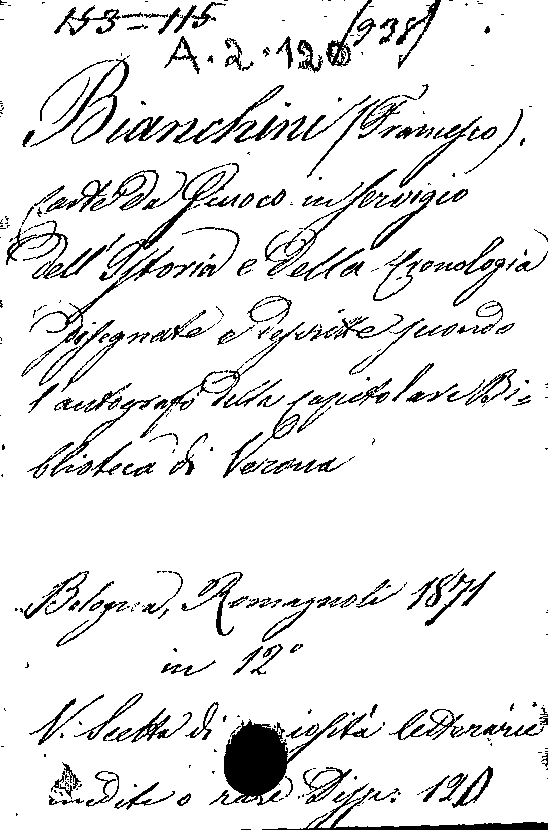 153-115 (938)
A. 2. 120
Bianchini (Francesco).
Carte da Giuoco in servigio
dell'Istoria e della Cronologia
disegnate e descritte secondo
l'autografo della Capitolare Bi-
blioteca di Verona
Bologna, Romagnoli 1871
in 12°
V. Scelta di iosità letterarie
inedite o rare Disp: 120